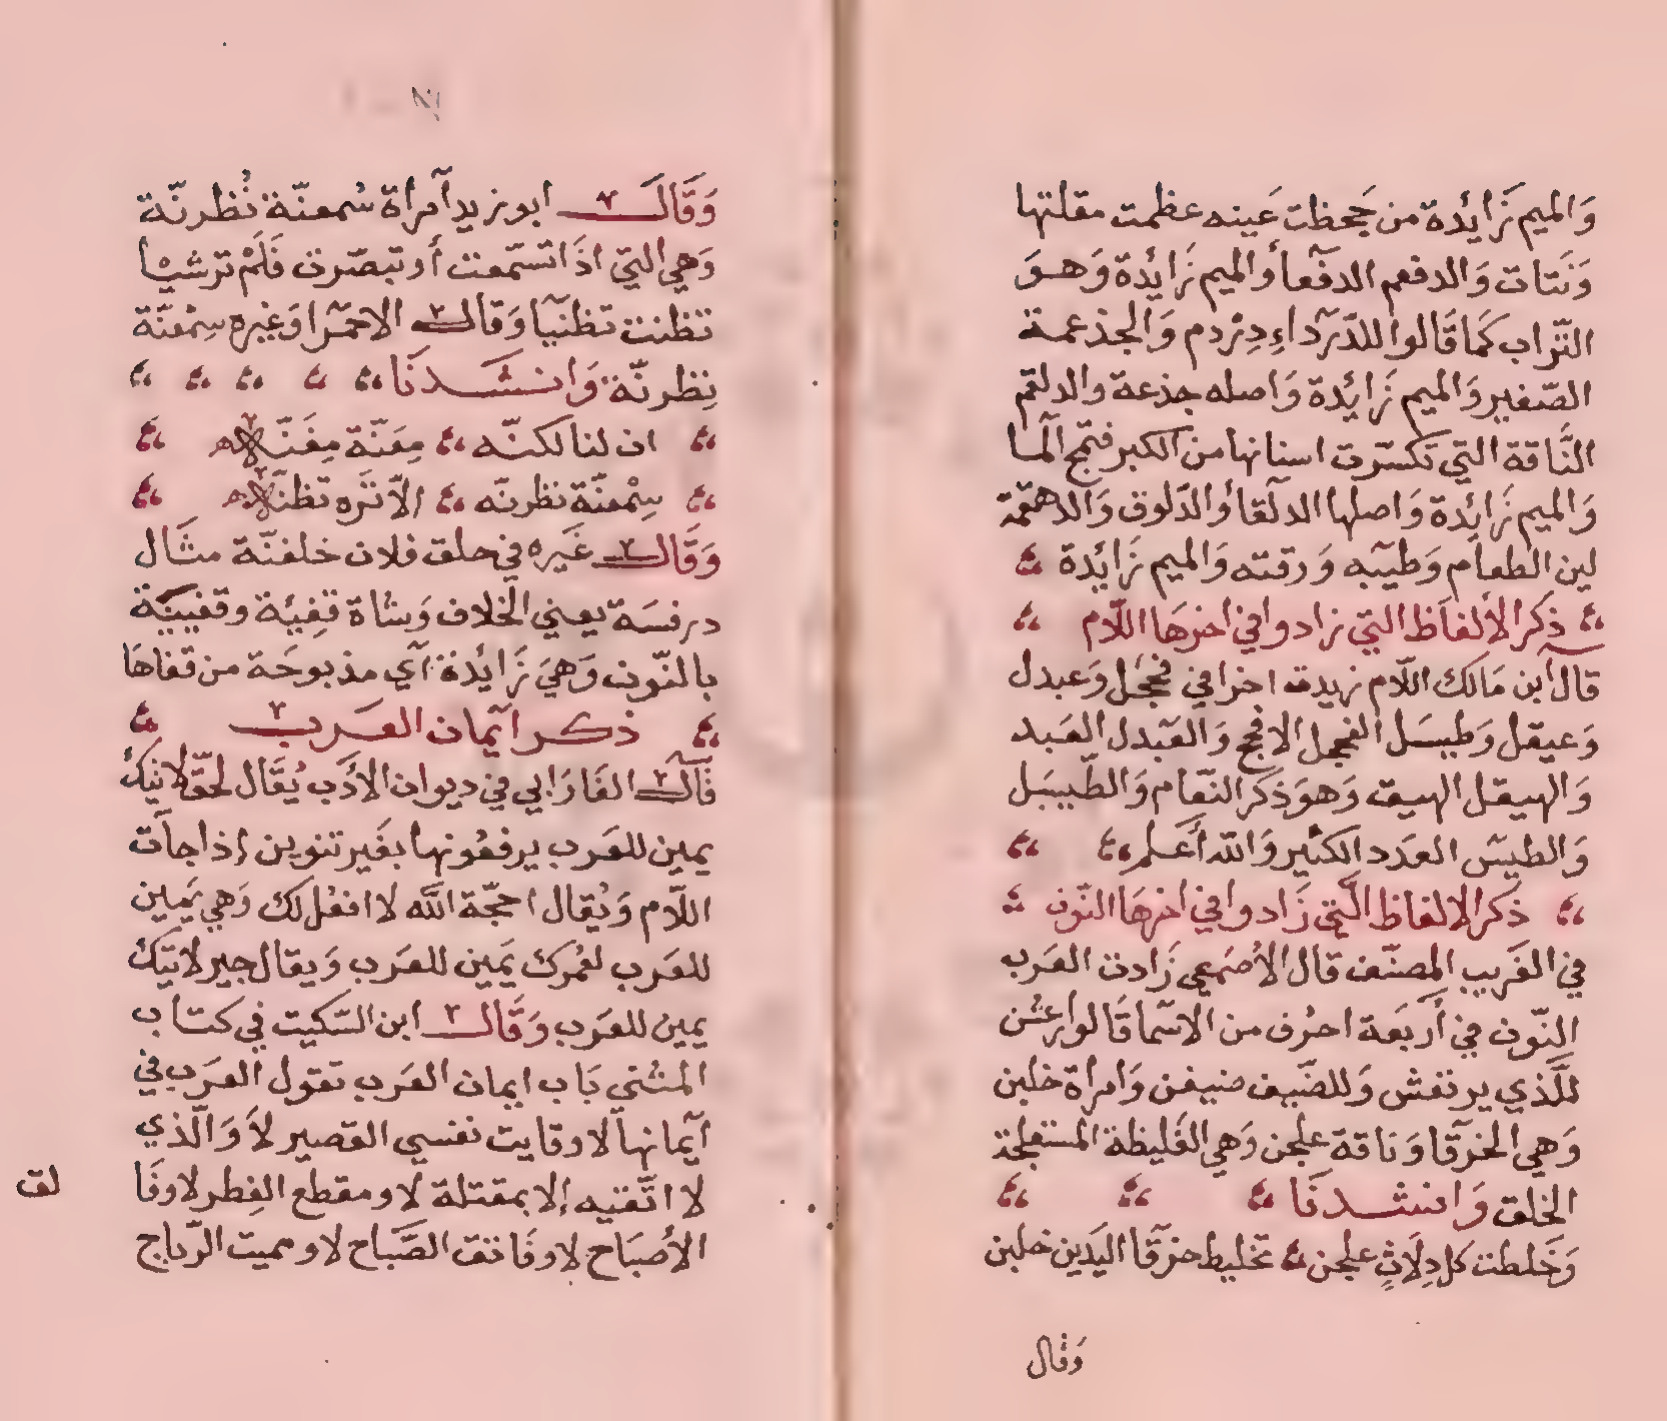 وَالميم زَائِدة من جَحظت عَينه عظمت مقلتها
وَنَتات وَالدفعم الدفعا أو الميم زَائِدة وَهوَ
التّراب كَمَا قَالوا للدّرداءِ دِرْدم وَالجذعمة
الصّغير وَالميم زَائِدة وَاصله جذعة والدلقم
النَّاقة التي تكسّرت اسنانها من الكبر فتمج الما
وَالميم زَائِدة وَاصلها الدلقا أو الدّلوق وَالدهقمة
لين الطعام وَطيبه وَرقته وَالميم زَائِدة
ذكر الألفاظ التي زادوا في اخرهَا اللّام
قال ابن مَالك اللّام زيدت اخرا في فحجل وَعبدل
وَعيقل وَطيسَل الفحجل الافحج وَالعبدل العَبد
وَالهيقل الهيق وَهوَ ذكر النعَام وَالطّيسَل
وَالطيس العدَد الكثير وَالله أعَلم
ذكر الالفاظ الَّتي زَادوا في اخرهَا النّون
في الغَريب المصنّف قال الأصَمعي زَادت العَرب
النّون في أَربَعة احرُف من الاسّما قَالوا رعشن
للَّذي يرتعش وَللضّيف ضيفن وَامراة خلبن
وَهي الخرقَا وَناقة علجن وَهي الغَليظة المستعلجة
الخلق وَانشدنَا
وَخَلطت كل دِلَاثٍ علجن تخليط خرقَا اليَدين خلبن
وَقال
وَقَالَ ابو زيد آمراة سُمعنّة نُظرنّة
وَهي التي اذَا تسّمعت أو تبصّرت فَلَمْ تر شيْا
تظنت تظنيًا وَقال الاحمَر اوَغيره سِمْعنّة
نِظرنّة وَانشَدنَا
ان لنا لكنّه مِعَنّة مِفَنّه
سِمْعنّة نظرنّه الاّ تَرَه تظنّه
وَقَال غَيره في خلق فلان خلفنّة مثَال
درفسَة يعني الخلاف وَشاة قفِيئة وقفيينة
بالنّون وَهيَ زَائِدة آي مذبوحَة من قفاهَا
ذكر آيمان العَرب
قَالَ الفَارَابي في ديوان الأدَب يُقَال لحقّ لا تيك
يمين للعَرب يرفعُونها بغَير تنوين إذا جآت
اللّام وَيُقال احجّة اللَّه لا افعُل لك وَهي يَمين
للعَرب لعُمرك يَمين للعَرب وَيقال جير لا تيك
يمين للعَرب وَقَال ابن السّكيت في كتاب
المثنى بَاب ايمان العَرب تقول العرَب في
آيمانها لا وقايت نفسي القصير لاَ وَالّذي
لا اتّقيه إلا بمقتلة لا ومقطع القِطر لا وفَا
لق
الأصبَاح لا وفَاتق الصَّباح لا ومميت الرّياح